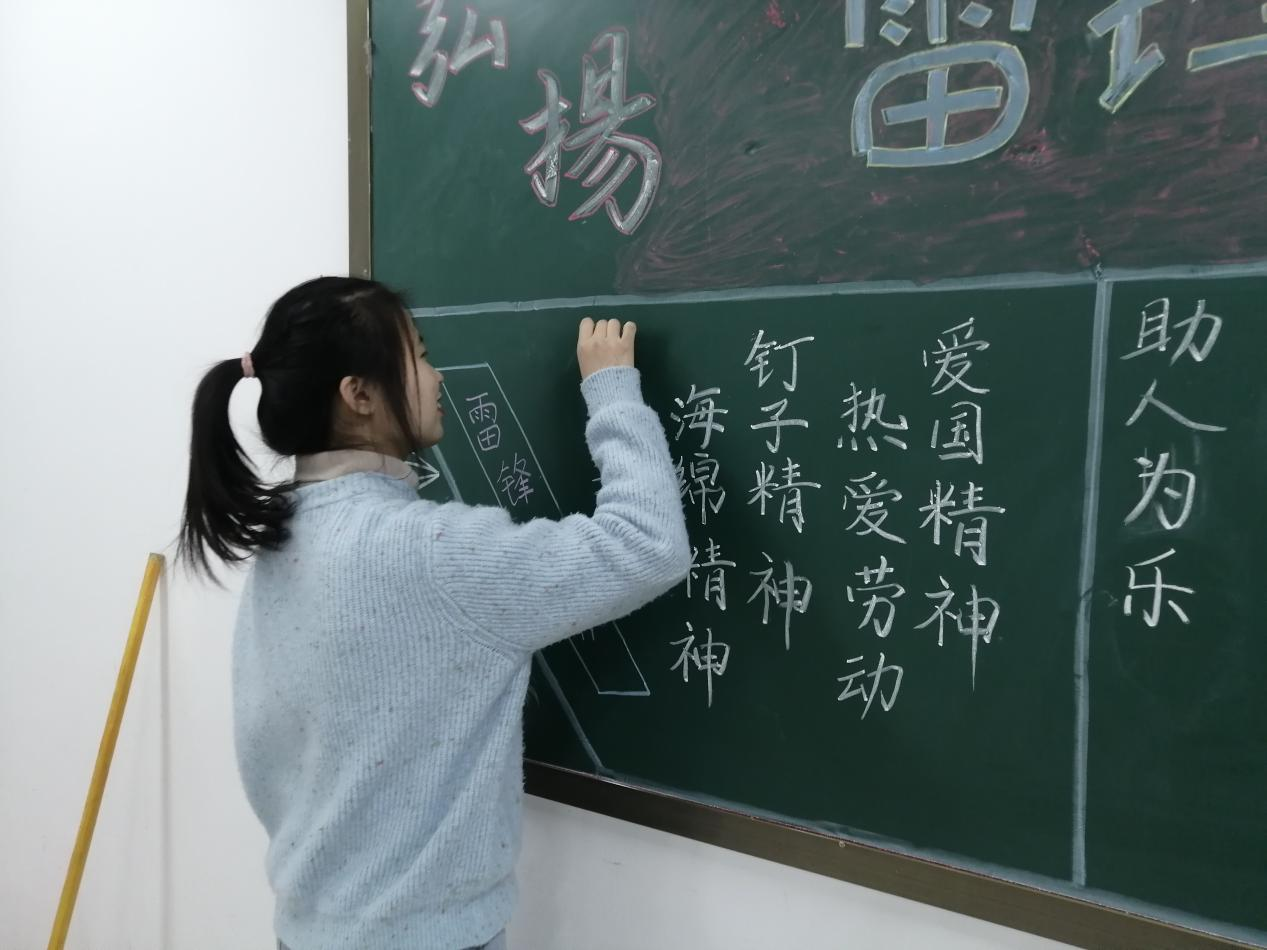 弘揚
雷
雷锋
海绵精神
钉子精神
热爱劳动
爱国精神
助人为乐